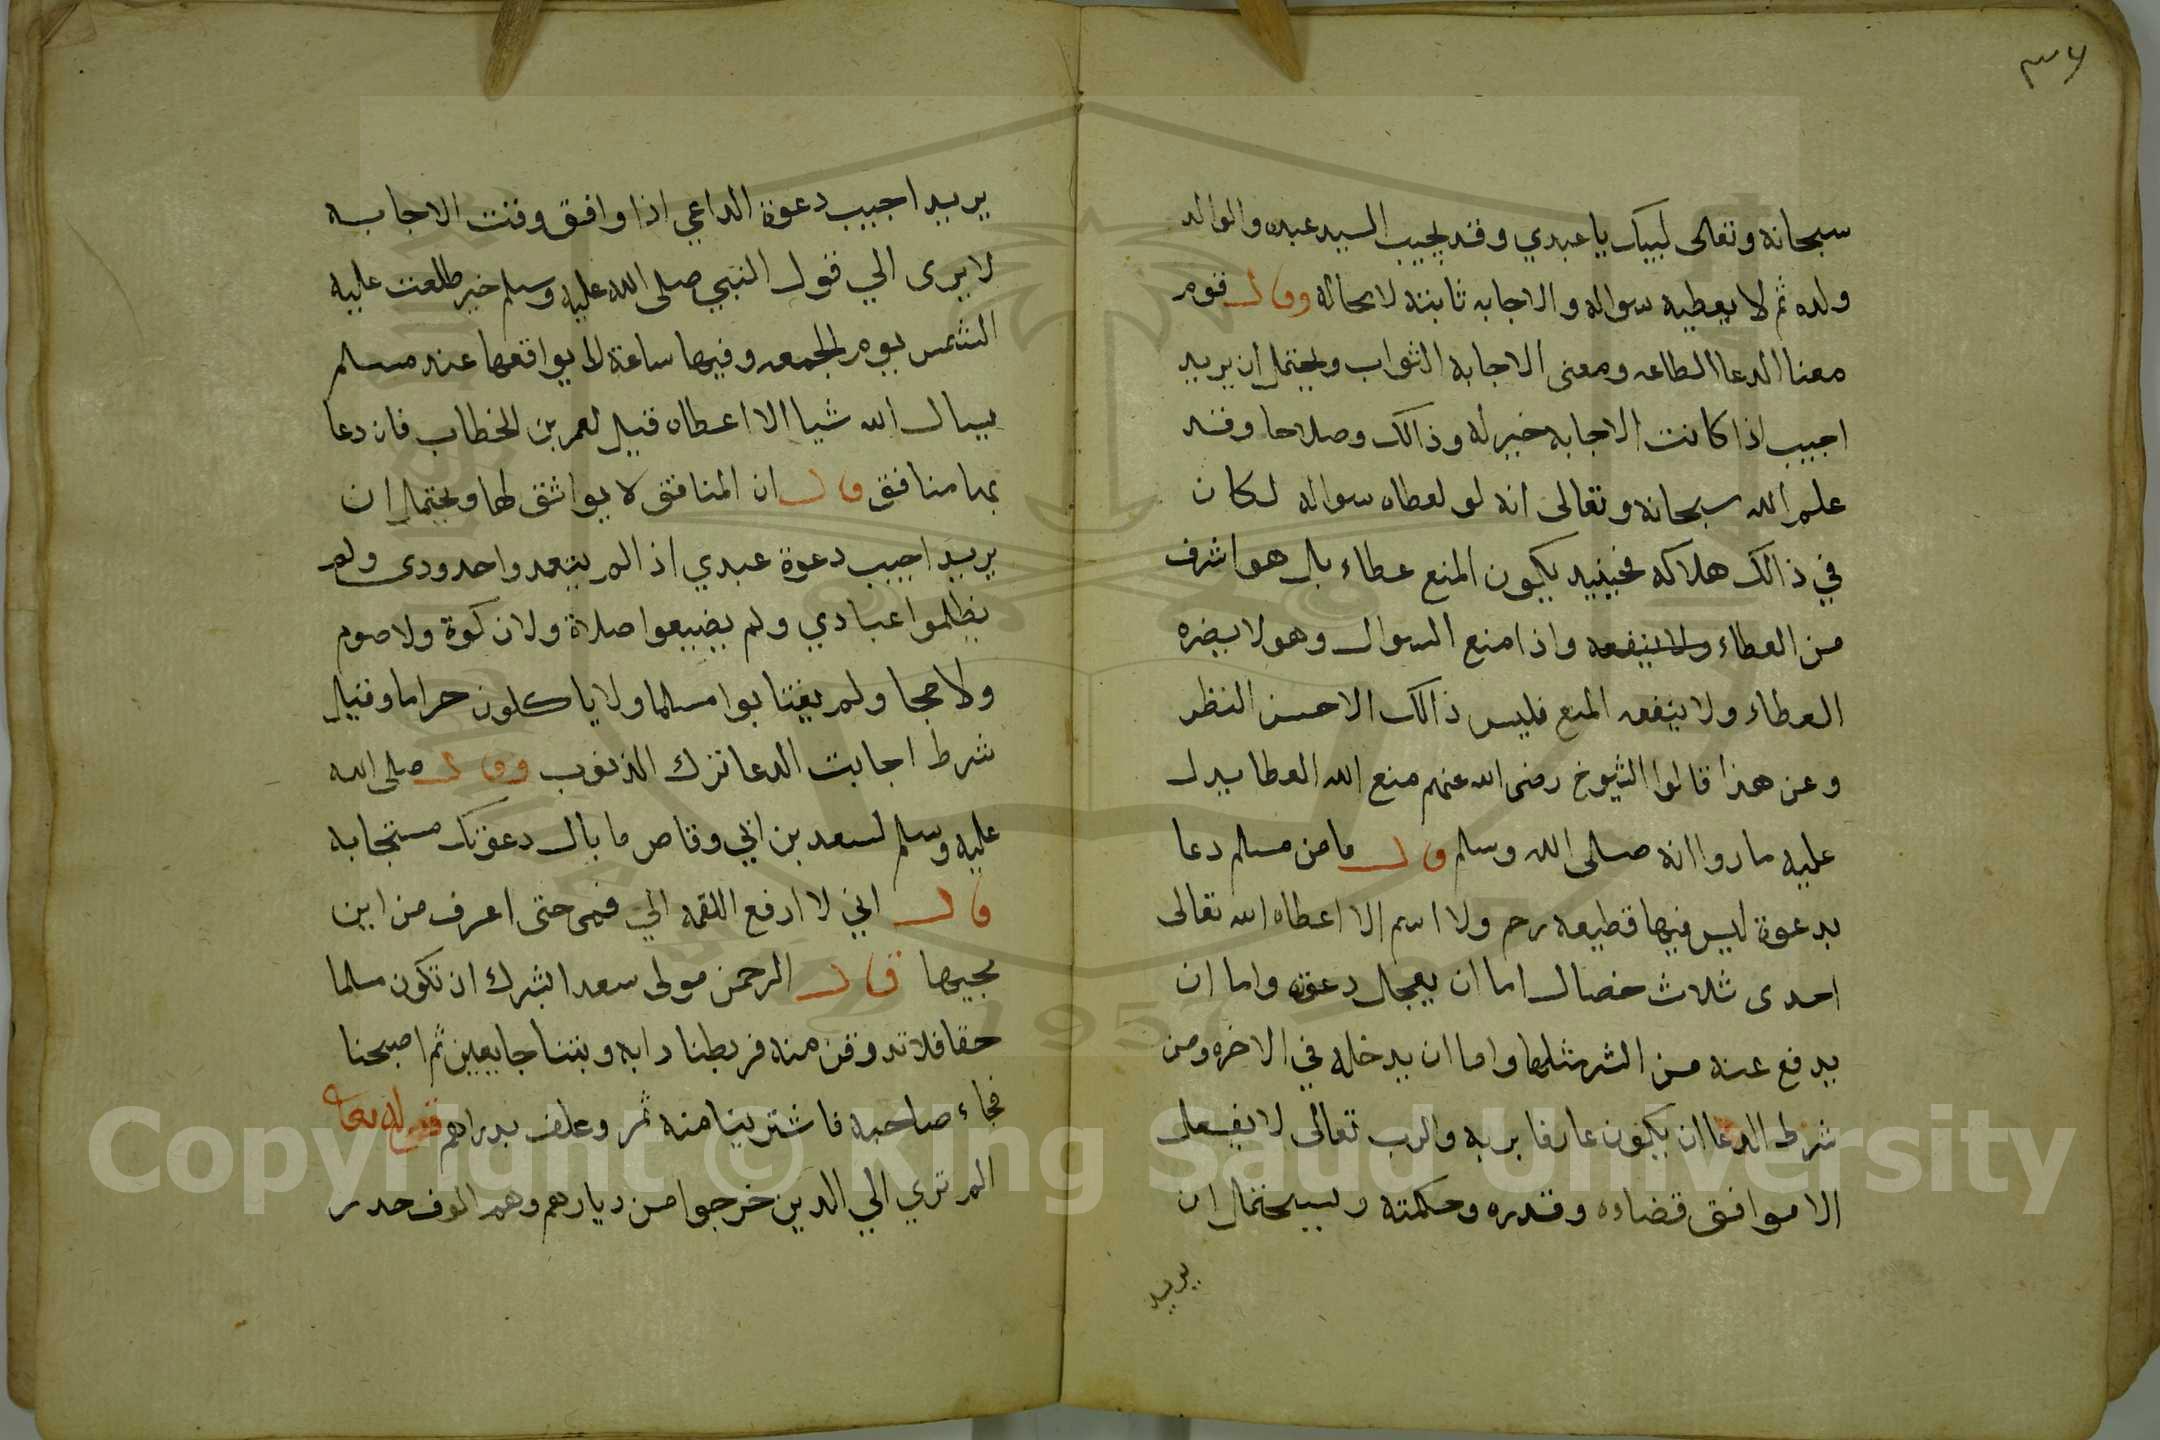 ٣٦
سبحانه وتعالى لبيك يا عبدي وقد يجيب السيد عبده والوالد
ولده ثم لا يعطيه سواله والاجابه ثابتة لا محاله وقال قوم
معنا الدعا الطاعه ومعنى الاجابه الثواب ويحتمل ان يريد
اجيب اذا كانت الاجابه خير له وذالك وصلاحا وقد
علم الله سبحانه وتعالى انه لو لعطاه سواله لكان
في ذالك هلاكه فحينيد يكون المنع عطاء بل هو اشرف
من العطاء ولا ينفعه واذا منع السوال وهو لا يضره
العطاء ولا ينفعه المنع فليس ذالك الا حسن النظر
وعن هذا قالوا الشيوخ رضى الله عنهم منع الله العطا يدل
عليه ما روا انه صلى الله وسلم قال ما من مسلم دعا
بدعوة ليس فيها قطيعه رحم ولا اسم الا اعطاه الله تعالى
احدى ثلاث خصال اما ان يعجل دعوته واما ان
يدفع عنه من الشر مثلها واما ان يدخله في الاخره ومن
شرط الدعا ان يكون عارفا بربه والرب تعالى لا يفعل
الا موافق قضاوه وقدره وحكمته ويحتمل ان
يريد
يريد اجيب دعوة الداعي اذا وافق وقت الاجابه
لا يرى الي قول النبي صلى الله عليه وسلم خير طلعت عليه
الشمس يوم الجمعه وفيها ساعة لا يواقعها عند مسلم
يسال الله شيا الا اعطاه قيل لعمر بن الخطاب فان دعا
بها منافق قال ان المنافق لا يوافق لها ويحتمل ان
يريد اجيب دعوة عبدي اذا لم يتعد واحدودى ولم
يظلموا عبادي ولم يضيعوا صلاة ولا زكوة ولا صوم
ولا حجا ولم يغتابوا مسلما ولا ياكلون حراما وقيل
شرط اجابت الدعا ترك الذنوب وقال صلى الله
عليه وسلم لسعد بن ابي وقاص ما بال دعوتك مستجابه
قال اني لا ارفع اللقمه الي فمى حتى اعرف من اين
مجيها قال الرحمن مولى سعد ايشرك ان تكون مسلما
حقا فلا تدوقن منه فربطنا دابه وبتنا جايعين ثم اصبحنا
فجاء صاحبه فاشترينا منه ثمر وعلف بدراهم قوله تعا
الم تري الي الدين خرجوا من ديارهم وهم الوف حدر
Copyright © King Saud University
1957